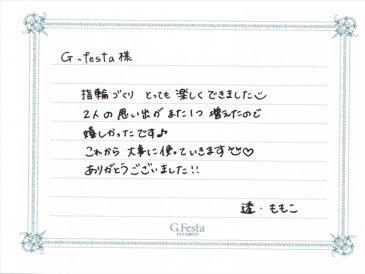 G.festa 様
指輪づくり とっても 楽しくできました
2人の思い出がまた1つ 増えたので
嬉しかったです♪
これから 大事に使っていきます♡
ありがとうございました!!
透・ももこ
G.Festa